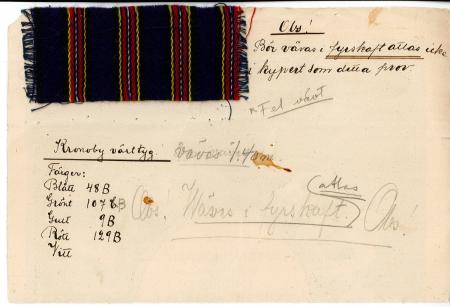 Obs!
Bör vävas i fyrskaft atlas icke
i kypert som detta prov.
Fel vävt
Kronoby västtyg. vävas i
Färger:
Blått 48B
Grönt 107B
Gult 9B
Rött 129B
Vitt
(atlas
Obs! Wävs i fyrskaft. Obs!